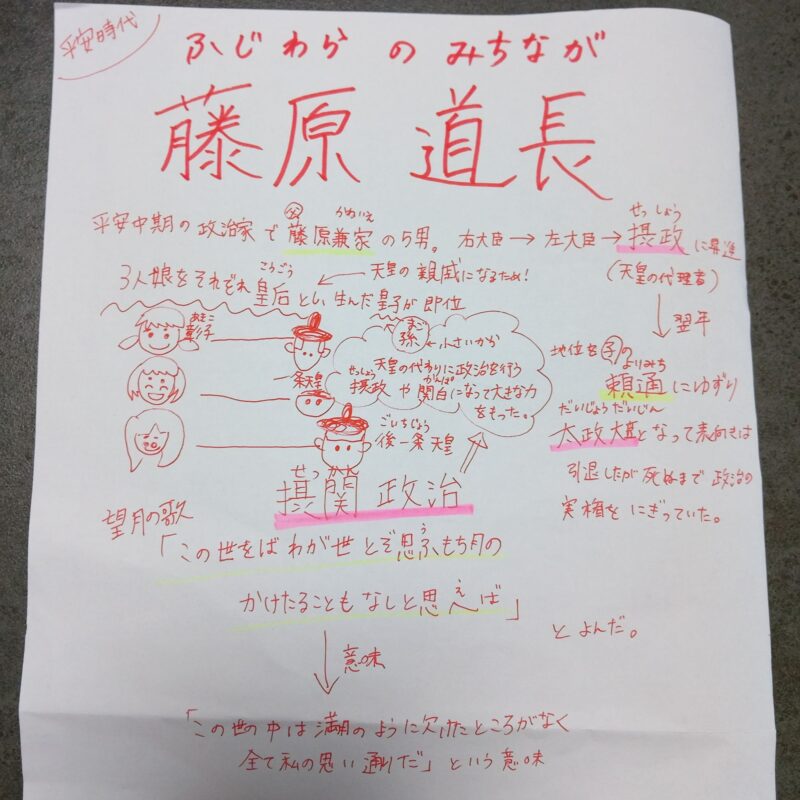 平安時代
ふじわら の みちなが
藤原 道長
平安中期の政治家で父藤原兼家の5男。右大臣→左大臣→摂政に昇進
かねいえ
せっしょう
(天皇の代理者)
3人娘をそれぞれ皇后とし、生んだ皇子が即位
こうごう
天皇の親戚になるため!
翌年
地位を子の
よりみち
頼通にゆずり
だいじょうだいじん
太政大臣となって表向きは
引退したが死ぬまで政治の
実権をにぎっていた。
あきこ
彰子
一条天皇
ごいちじょう
後一条天皇
まご
孫←小さいから
天皇の代わりに政治を行う
せっしょう かんぱく
摂政や関白になって大きな力
をもった。
せっかん
摂関政治
望月の歌
「この世をば わが世とぞ思ふ もち月の
う
かけたることも なしと思へば」
え
とよんだ。
意味
「この世の中は満月のように欠けたところがなく
全て私の思い通りだ」という意味